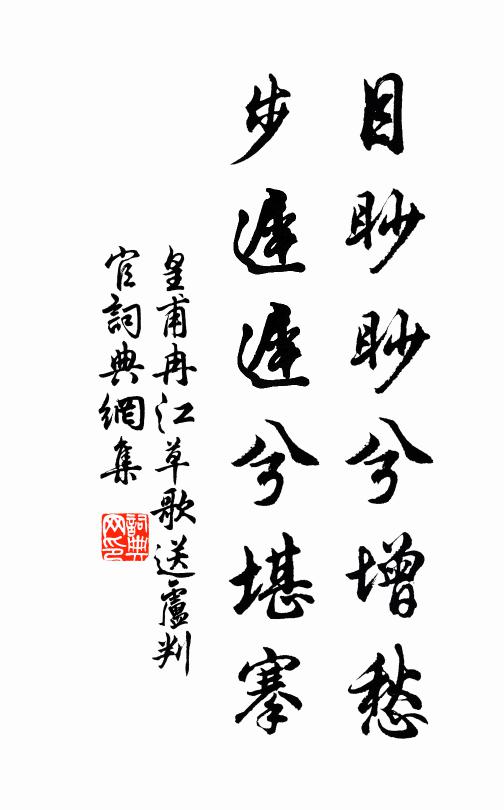 目眇眇兮增愁
步遲遲兮堪搴
皇甫冉江草歌送盧判
官詞典網集
詞典
网印